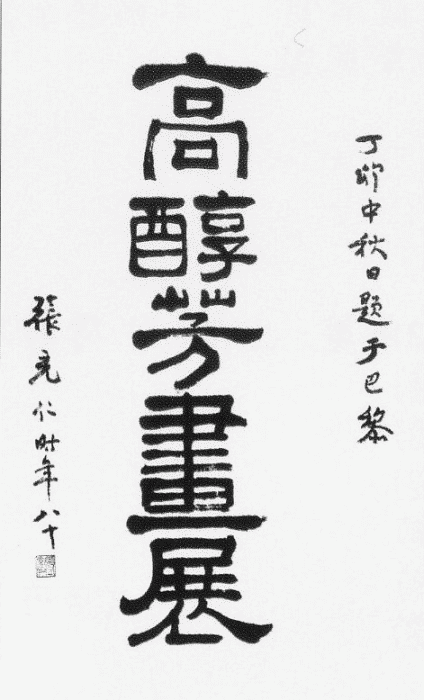 丁卯中秋日题于巴黎
高醇芳畫展
張充仁时年八十